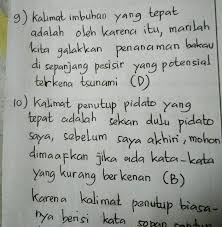 9) Kalimat imbuhan yang tepat
adalah oleh karena itu, marilah
kita galakkan penanaman bakau
di sepanjang pesisir yang potensial
terkena tsunami (D)
10) Kalimat penutup pidato yang
tepat adalah sekan dulu pidato
saya, sebelum saya akhiri, mohon
dimaafkan jika ada kata-kata
yang kurang berkenan (B)
Karena kalimat penutup biasa-
nya berisi kata sopan santun